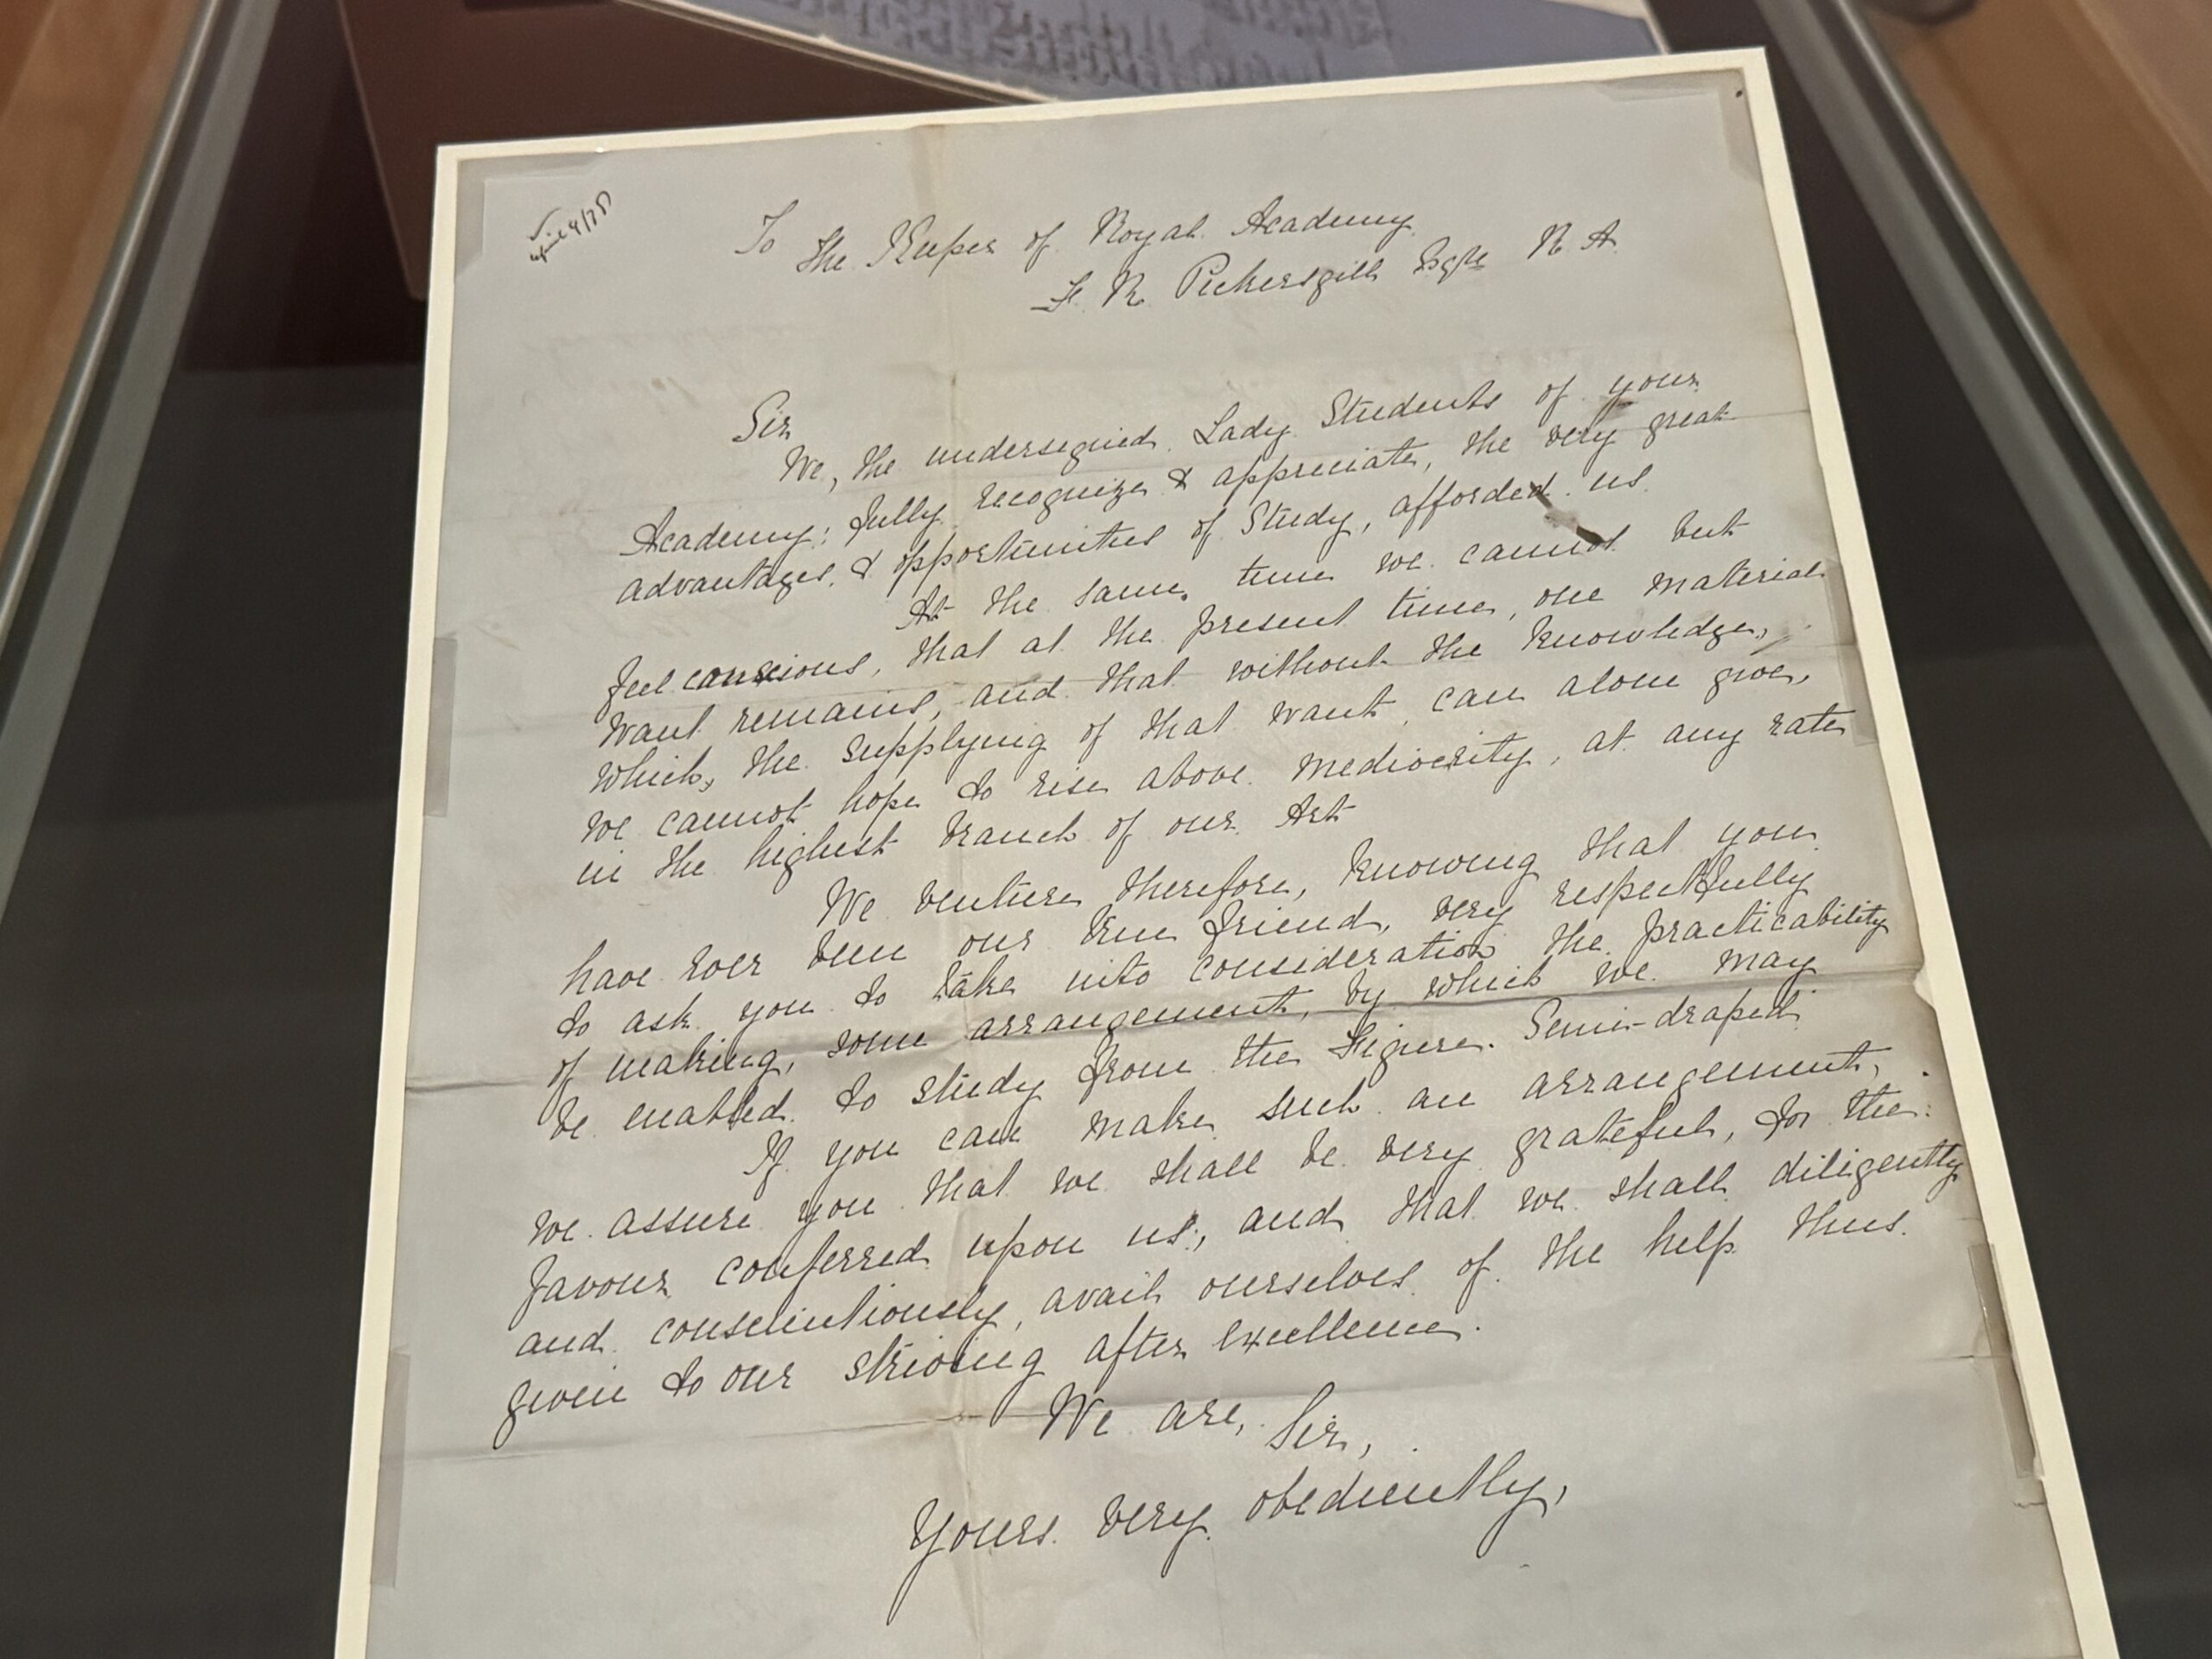 April 9/78
To
The Keeper of Royal Academy
F. R. Pickersgill Esqre R. A.
Sir
We, the undersigned Lady Students of your
Academy; fully recognize & appreciate, the very great
advantages, & opportunities of Study, afforded us.
At the same, time we cannot but
feel conscious, that at the present time, one material
want remains, and that without the knowledge,
which, the supplying of that want, can alone give,
we cannot hope to rise above mediocrity, at any rate
in the highest branch of our Art
We venture therefore, knowing that you
have ever been our true friend, very respectfully
to ask you to take into consideration the practicability
of making, some arrangement, by which we may
be enabled to study from the Figure. Semi-draped.
If you can make such an arrangement,
we assure you that we shall be very grateful, for the
favour conferred upon us; and that we shall diligently
and conscientiously, avail ourselves of the help thus
given to our striving after excellence.
We are, Sir,
Yours very obediently,